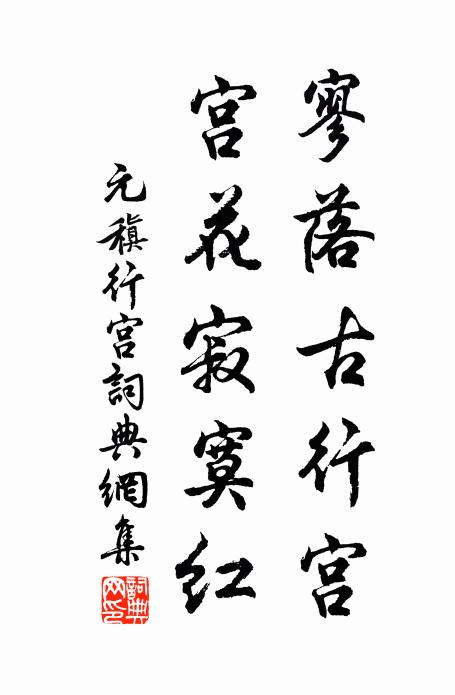 寥落古行宫
宫花寂寞红
元稹行宫詞典網集
詞典网印